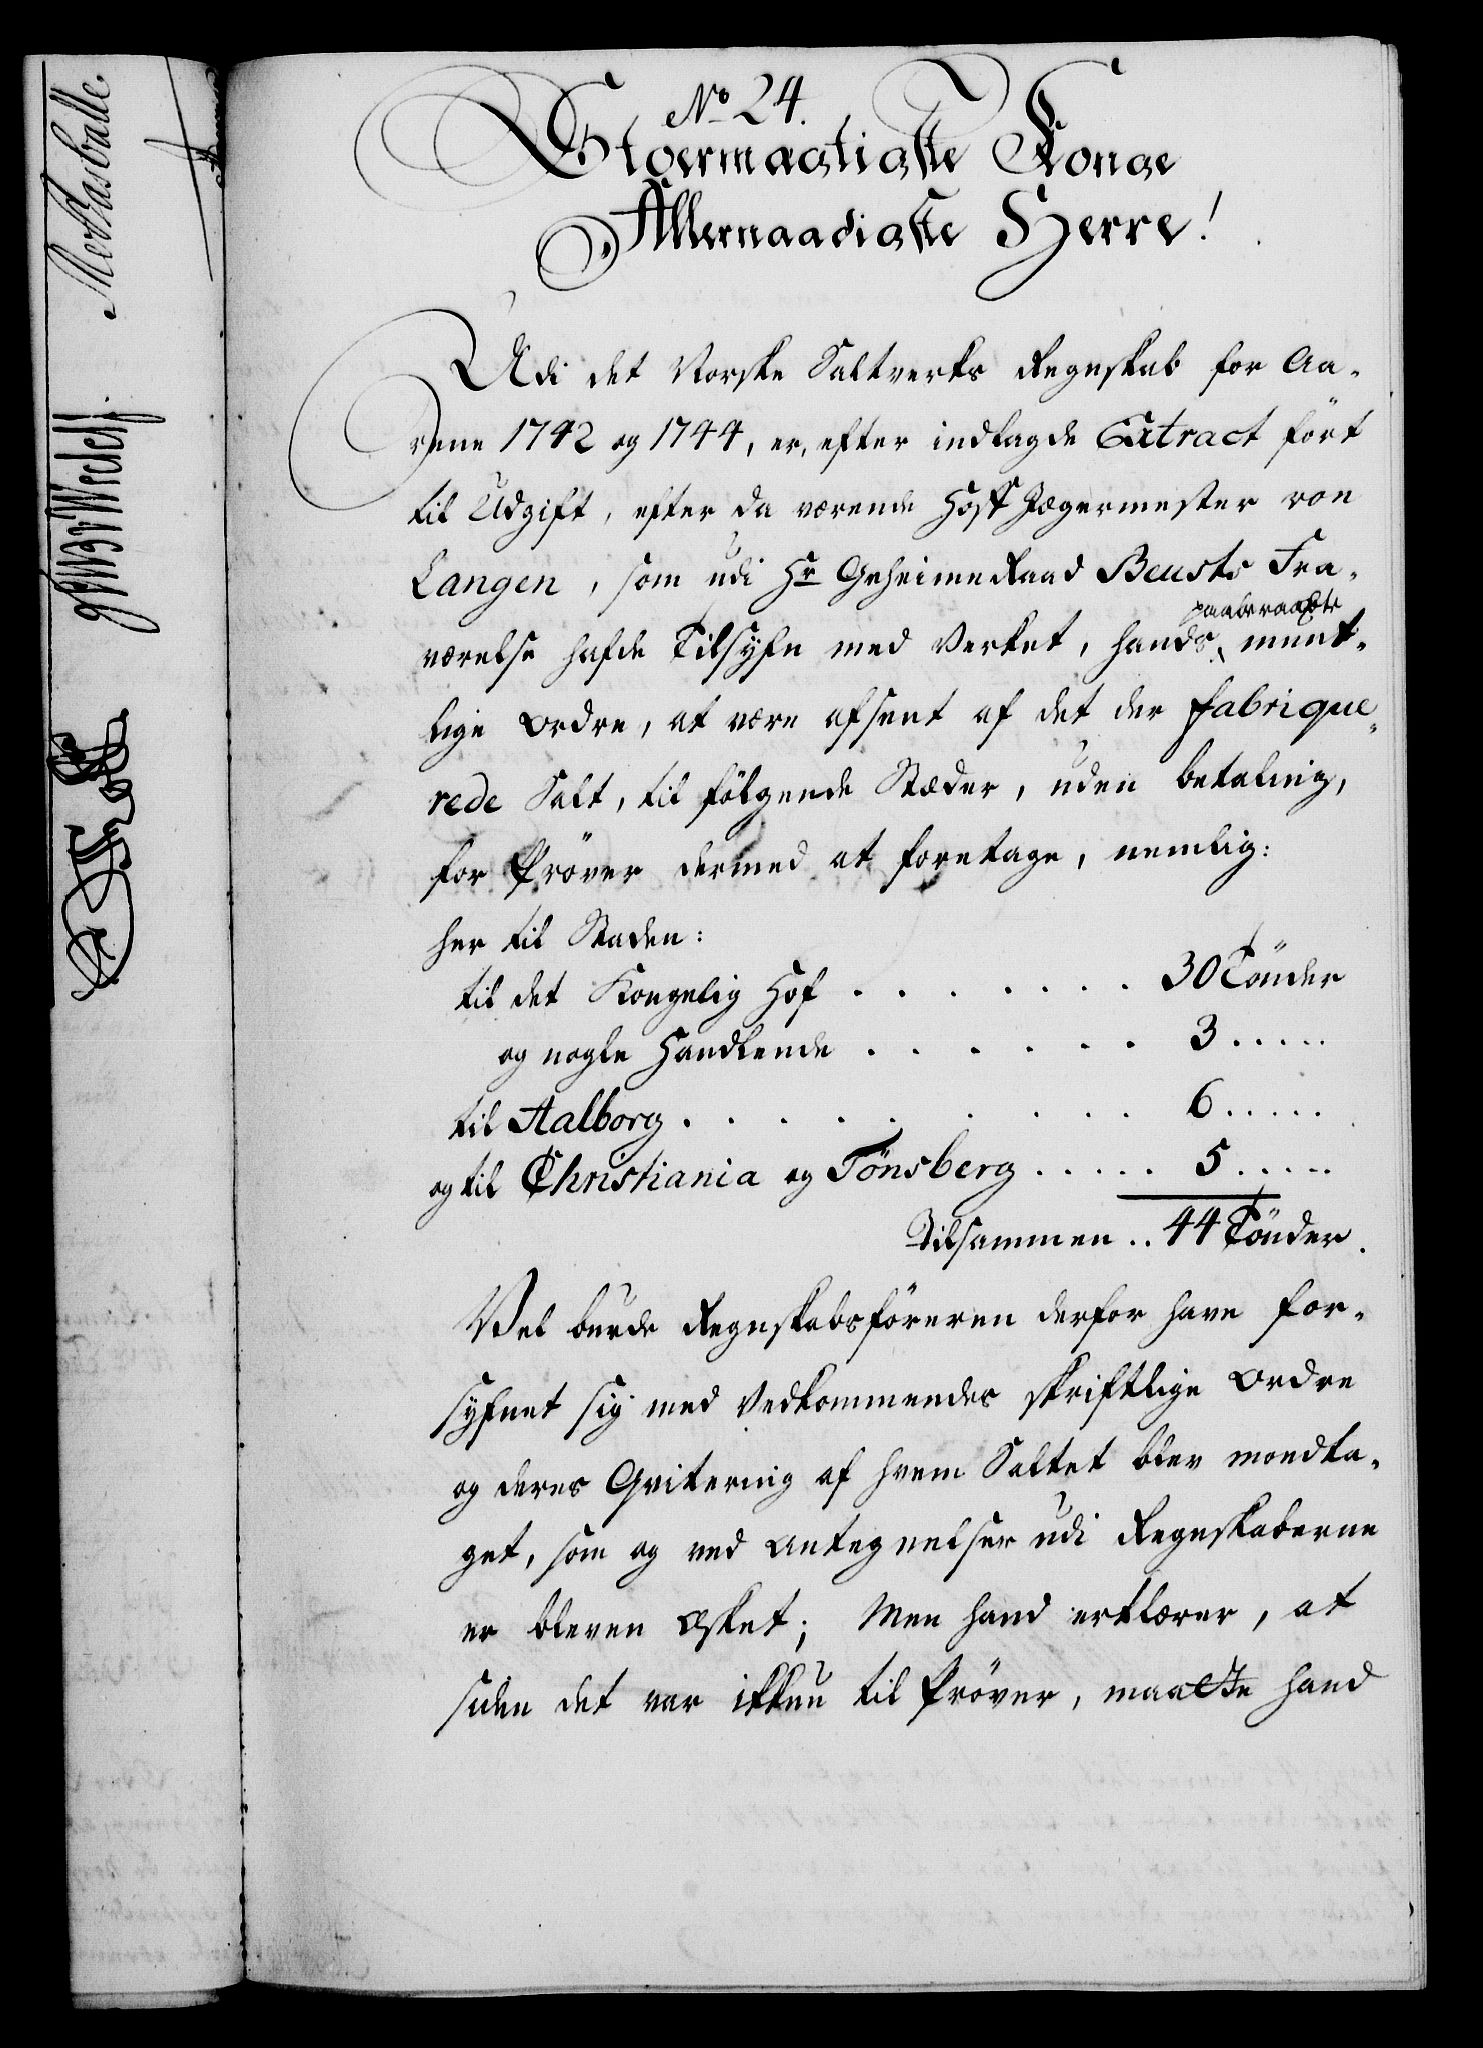 No 24.
Stoermægtigste Konge
Allernaadigste Herre!
Udi det Norske Saltverks Regnskab for Aa-
rene 1742 og 1744, er, efter indtagde Extract fört
til Udgift, efter da værende Hoff Jægermester von
Langen, som udi Hr Geheime Raad Beusts Fra-
paaberaabte
værelse hafde Tilsyfn med Verket, hands munt-
lige Ordre, at være afsent af det der fabrique-
rede Salt, til fölgende Stæder, uden betaling,
for Pröver dermed at foretage, nemlig:
her til Staden:
til det Kongelig Hof . . . . . . . 30 Tönder
og nogle Handlende . . . . . . 3 . . . . .
til Aalborg . . . . . . . . . . 6 . . . . .
og til Christiania og Tönsberg . . . . . 5 . . . . .
Tilsammen . . 44 Tönder.
Vel burde Regnskabsföreren derfor have for-
syfnet sig med Vedkommendes skriftlige Ordre
og deres Qvitering af hvem Saltet blev modta-
get, som og ved Antegnelser udi Regnskaberne
er bleven Æsket; Men hand erklærer, at
siden det var ikkun til Pröver, maatte hand